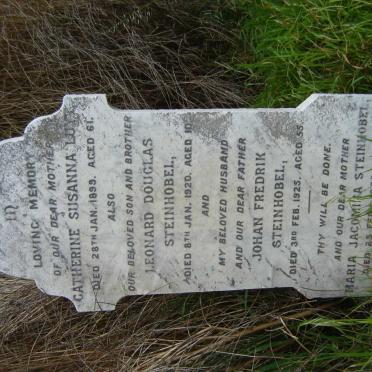 IN
LOVING MEMORY
OF OUR DEAR MOTHER
CATHERINE SUSANNA
DIED 28TH JAN. 1899. AGED 61.
ALSO
OUR BELOVED SON AND BROTHER
LEONARD DOUGLAS
STEINHOBEL,
DIED 8TH JAN. 1920. AGED
AND
MY BELOVED HUSBAND
AND OUR DEAR FATHER
JOHAN FREDRIK
STEINHOBEL,
DIED 3RD FEB. 1925. AGED 55.
THY WILL BE DONE.
AND OUR MOTHER
MARIA JACOMINA STEINHOBEL,